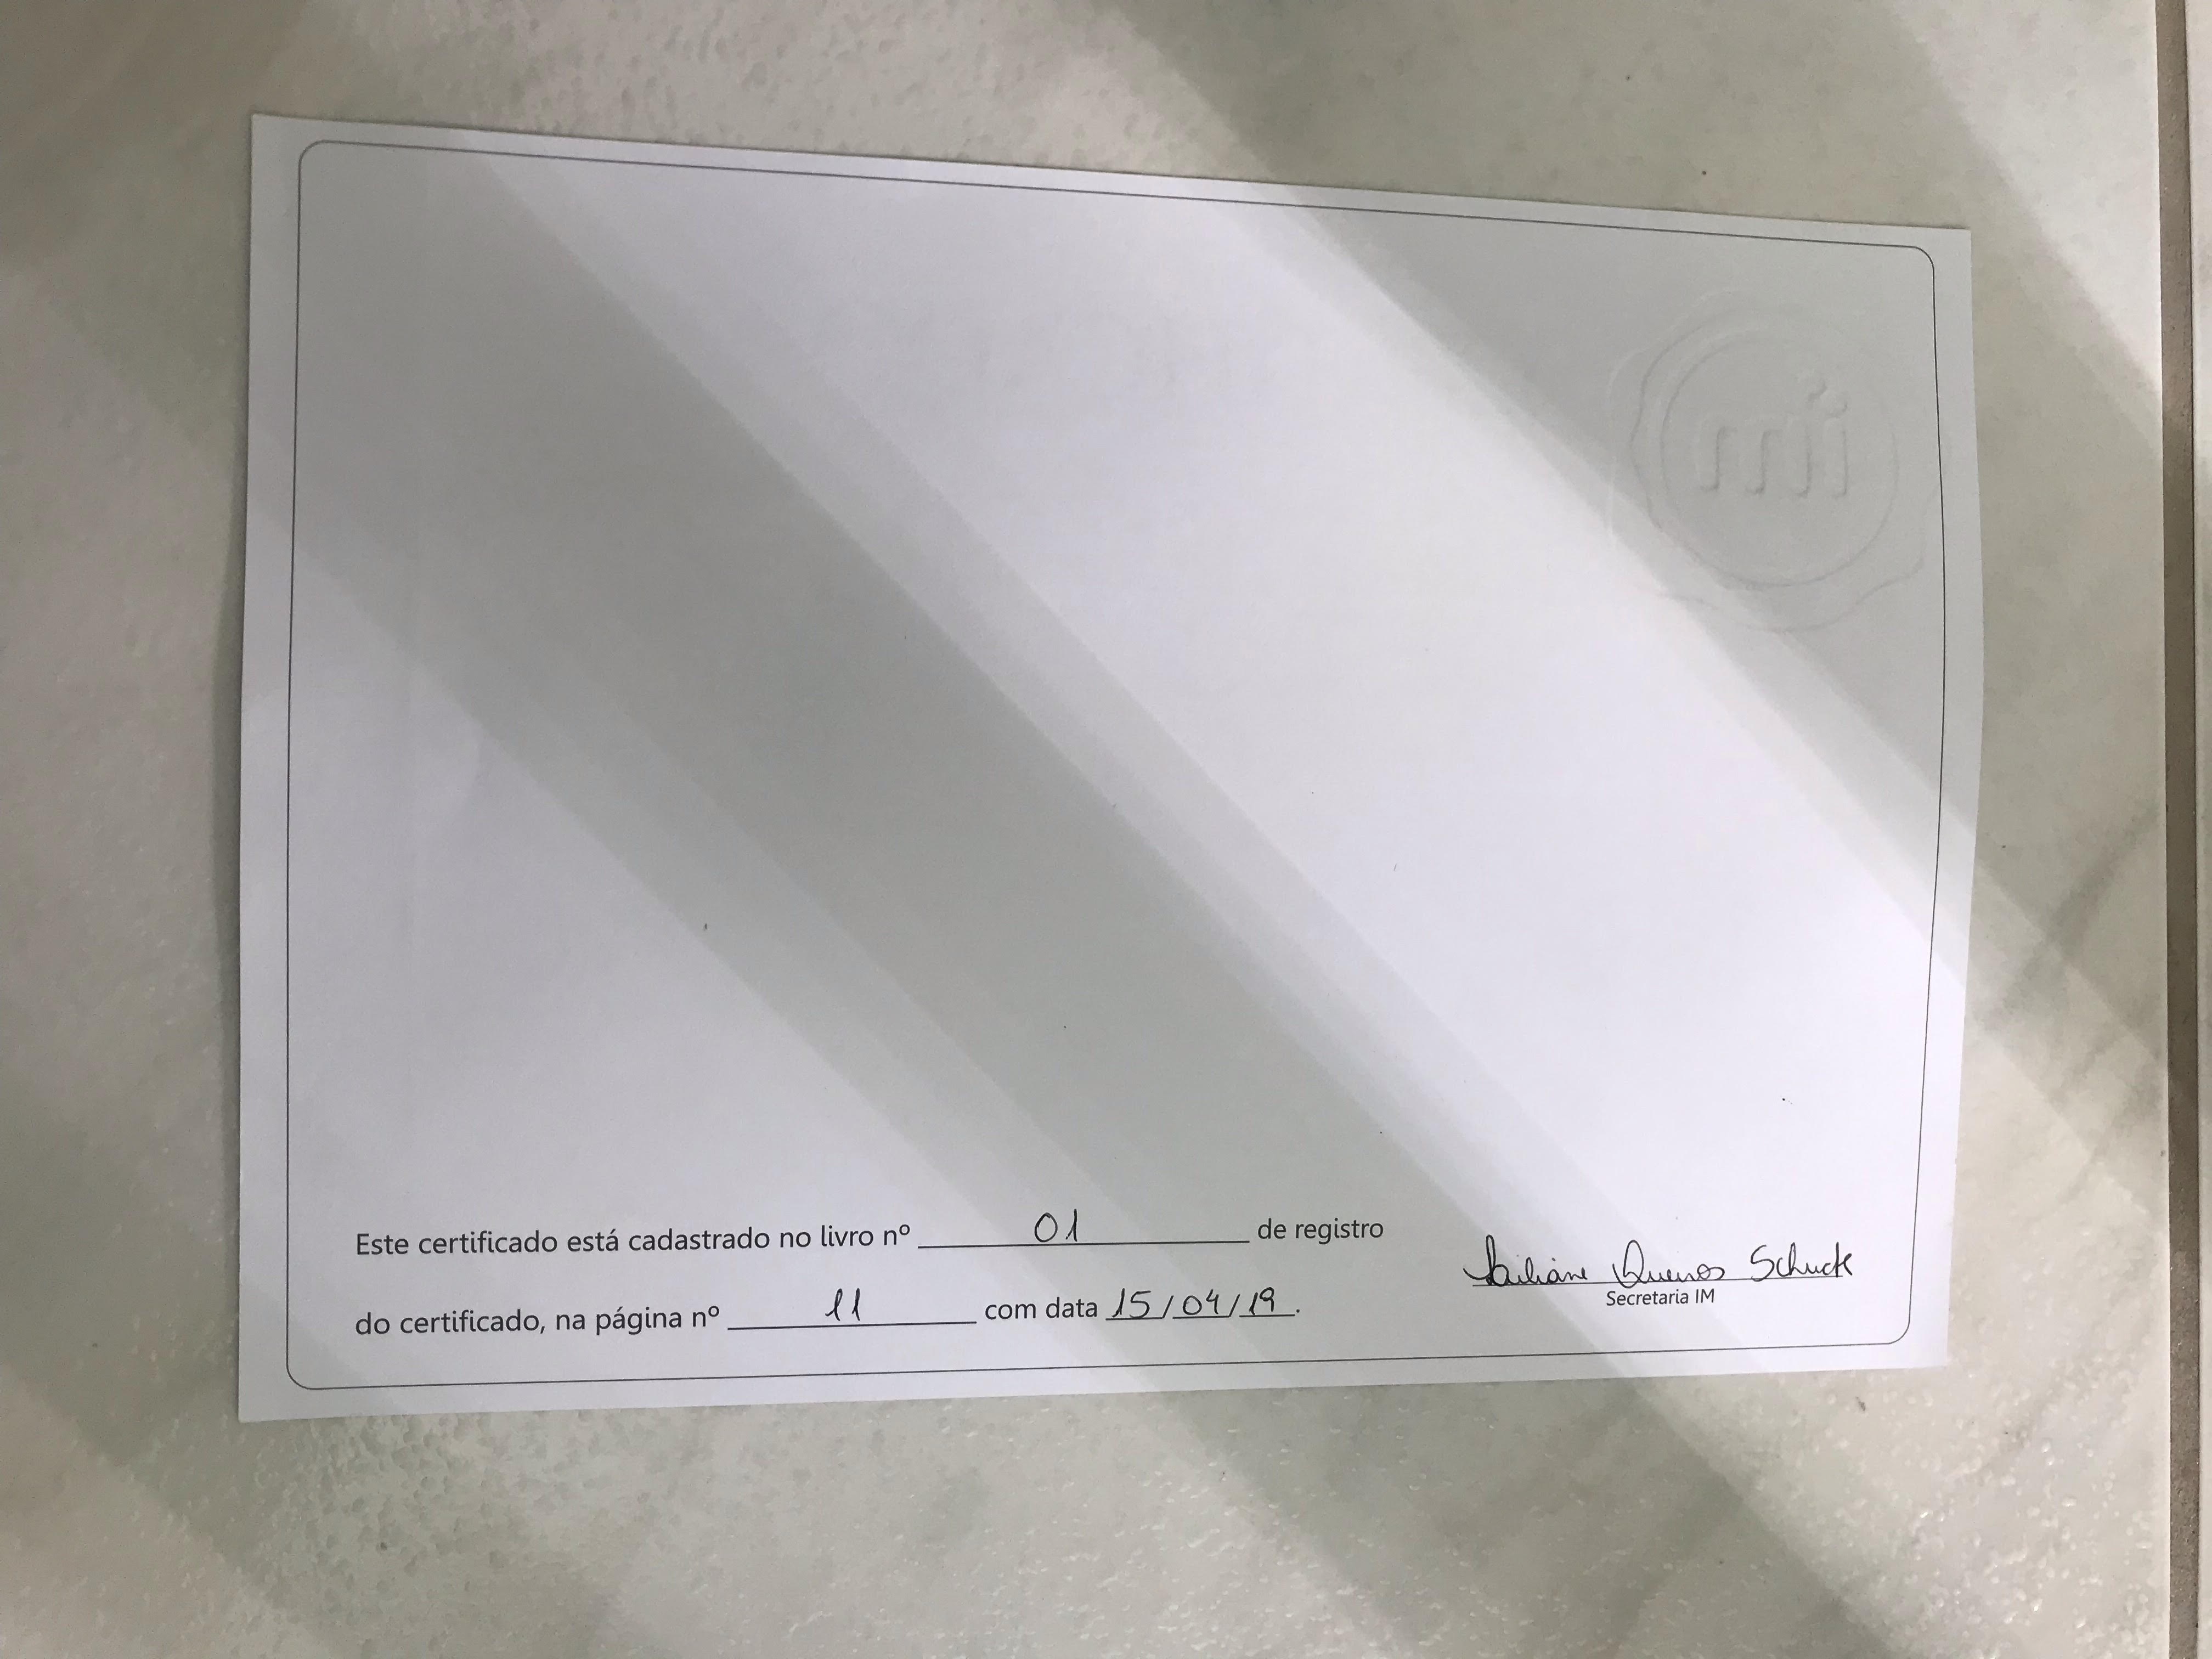 Este certificado está cadastrado no livro nº 01 de registro
do certificado, na página nº 11 com data 15/04/19.
Schuck
Secretaria IM